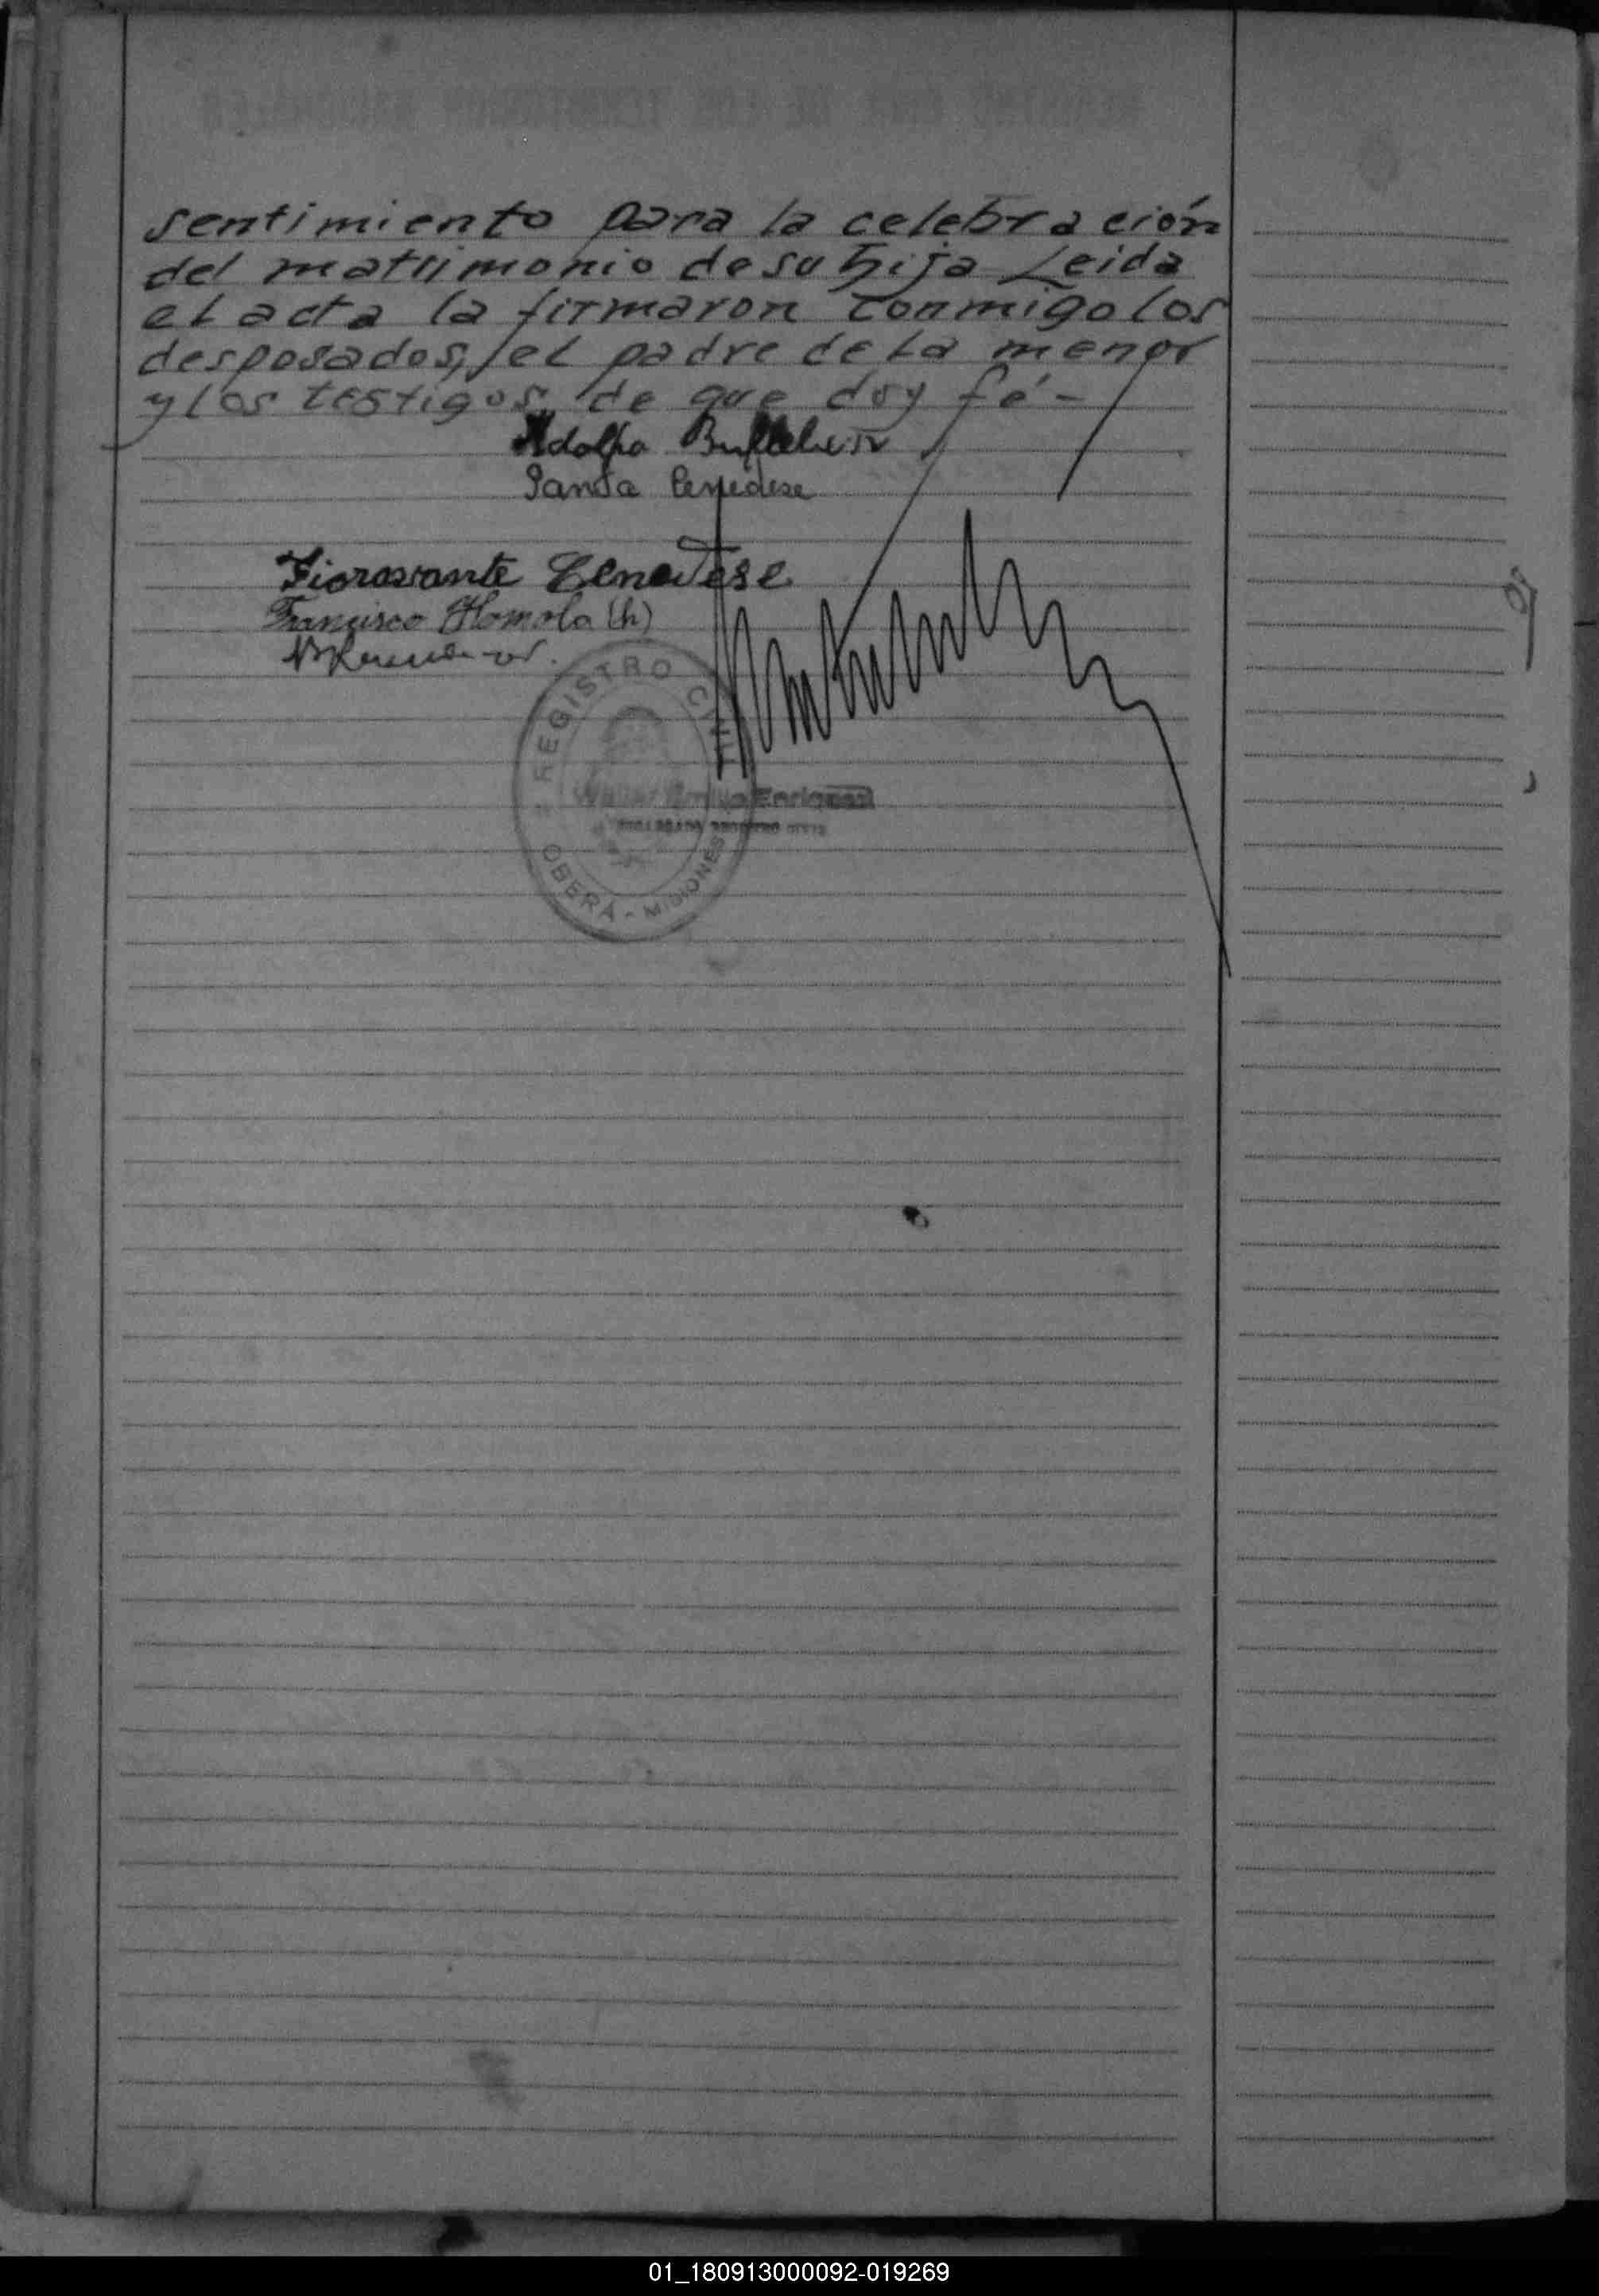 sentimiento para la celebración
del matrimonio de su hija Leida
el acta la firmaron conmigo los
desposados, el padre de la menor
y los testigos de que doy fé-
Adolfo
Santa Cenedese
Fioravante Cenedese
Francisco Homola (h)
REGISTRO CIVIL
Walter Emilio Enriquez
ENCARGADO REGISTRO CIVIL
OBERÁ - MISIONES
01_180913000092-019269